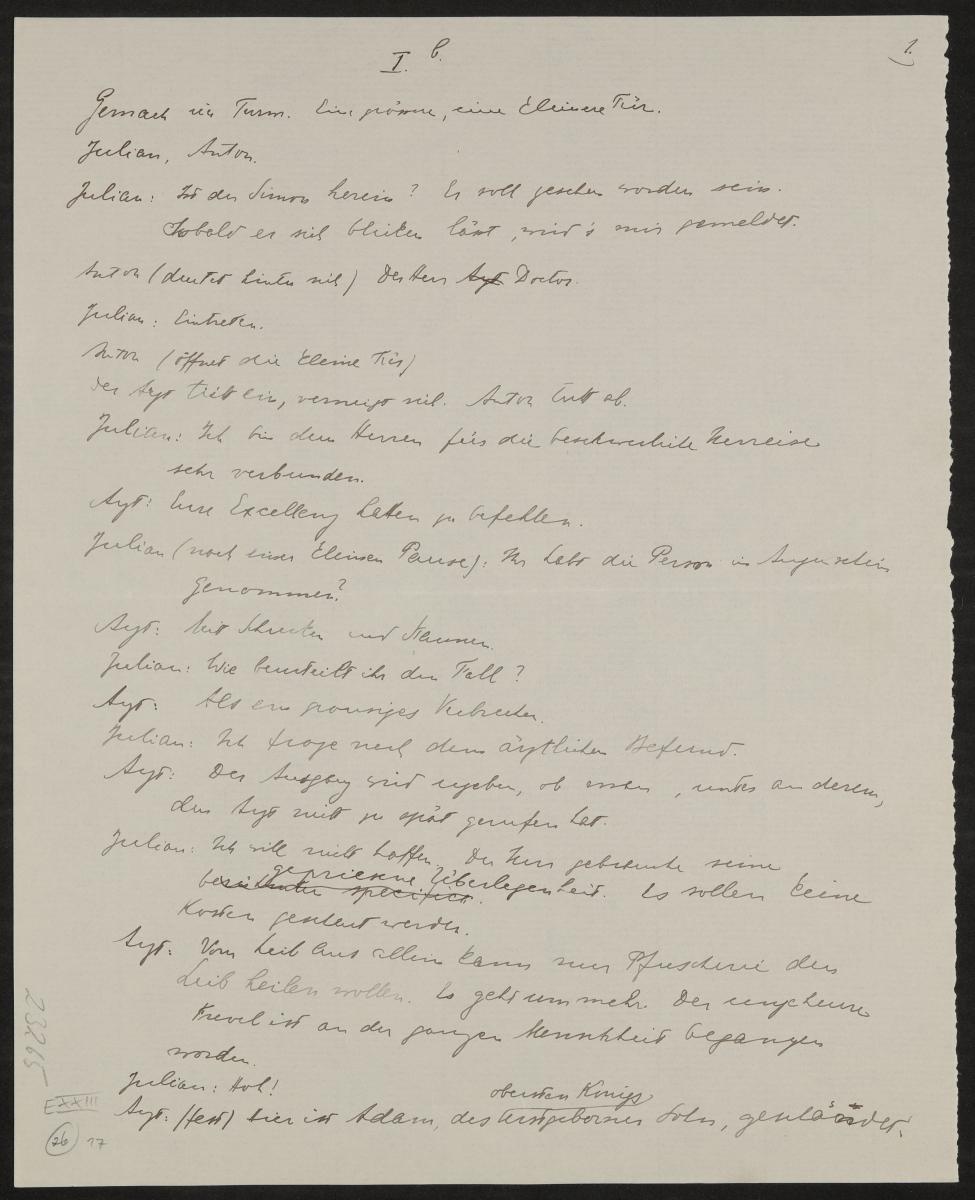 I. b.
1.
Gemach im Turm. Eine grössere, eine kleinere Tür.
Julian, Anton.
Julian: Ist der Simon herein? Er soll gesehen worden sein.
Sobald er sich blicken lässt, wird's mir gemeldet.
Anton (deutet hinter sich) Der Herr Arzt Doctor.
Julian: Eintreten.
Anton (öffnet die kleine Tür)
Der Arzt tritt ein, verneigt sich. Anton tritt ab.
Julian: Ich bin dem Herren für die beschwerliche Herreise
sehr verbunden.
Arzt: Eure Excellenz haben zu befehlen.
Julian (nach einer kleinen Pause): Ihr habt die Person in Augenschein
genommen?
Arzt: Mit Schrecken und Staunen.
Julian: Wie beurteilt ihr den Fall?
Arzt: Als ein grausiges Verbrechen.
Julian: Ich frage nach dem ärztlichen Befund.
Arzt: Der Ausgang wird ergeben, ob man, unter anderem,
den Arzt nicht zu spät gerufen hat.
Julian: Ich will nicht hoffen. Der Herr gebrauche seine
gepriesene Überlegenheit. Es sollen keine
berühmten specifica.
Kosten gescheut werden.
Arzt: Vom Leib aus allein kann nur Pfuscherei den
Leib heilen wollen. Es geht um mehr. Der ungeheure
Frevel ist an der ganzen Menschheit begangen
worden.
Julian: Hoh!
obersten Königs
Arzt: (fest) hier ist Adam, des erstgeborner Sohn, geschändet.
23265
EXXIII
26
17